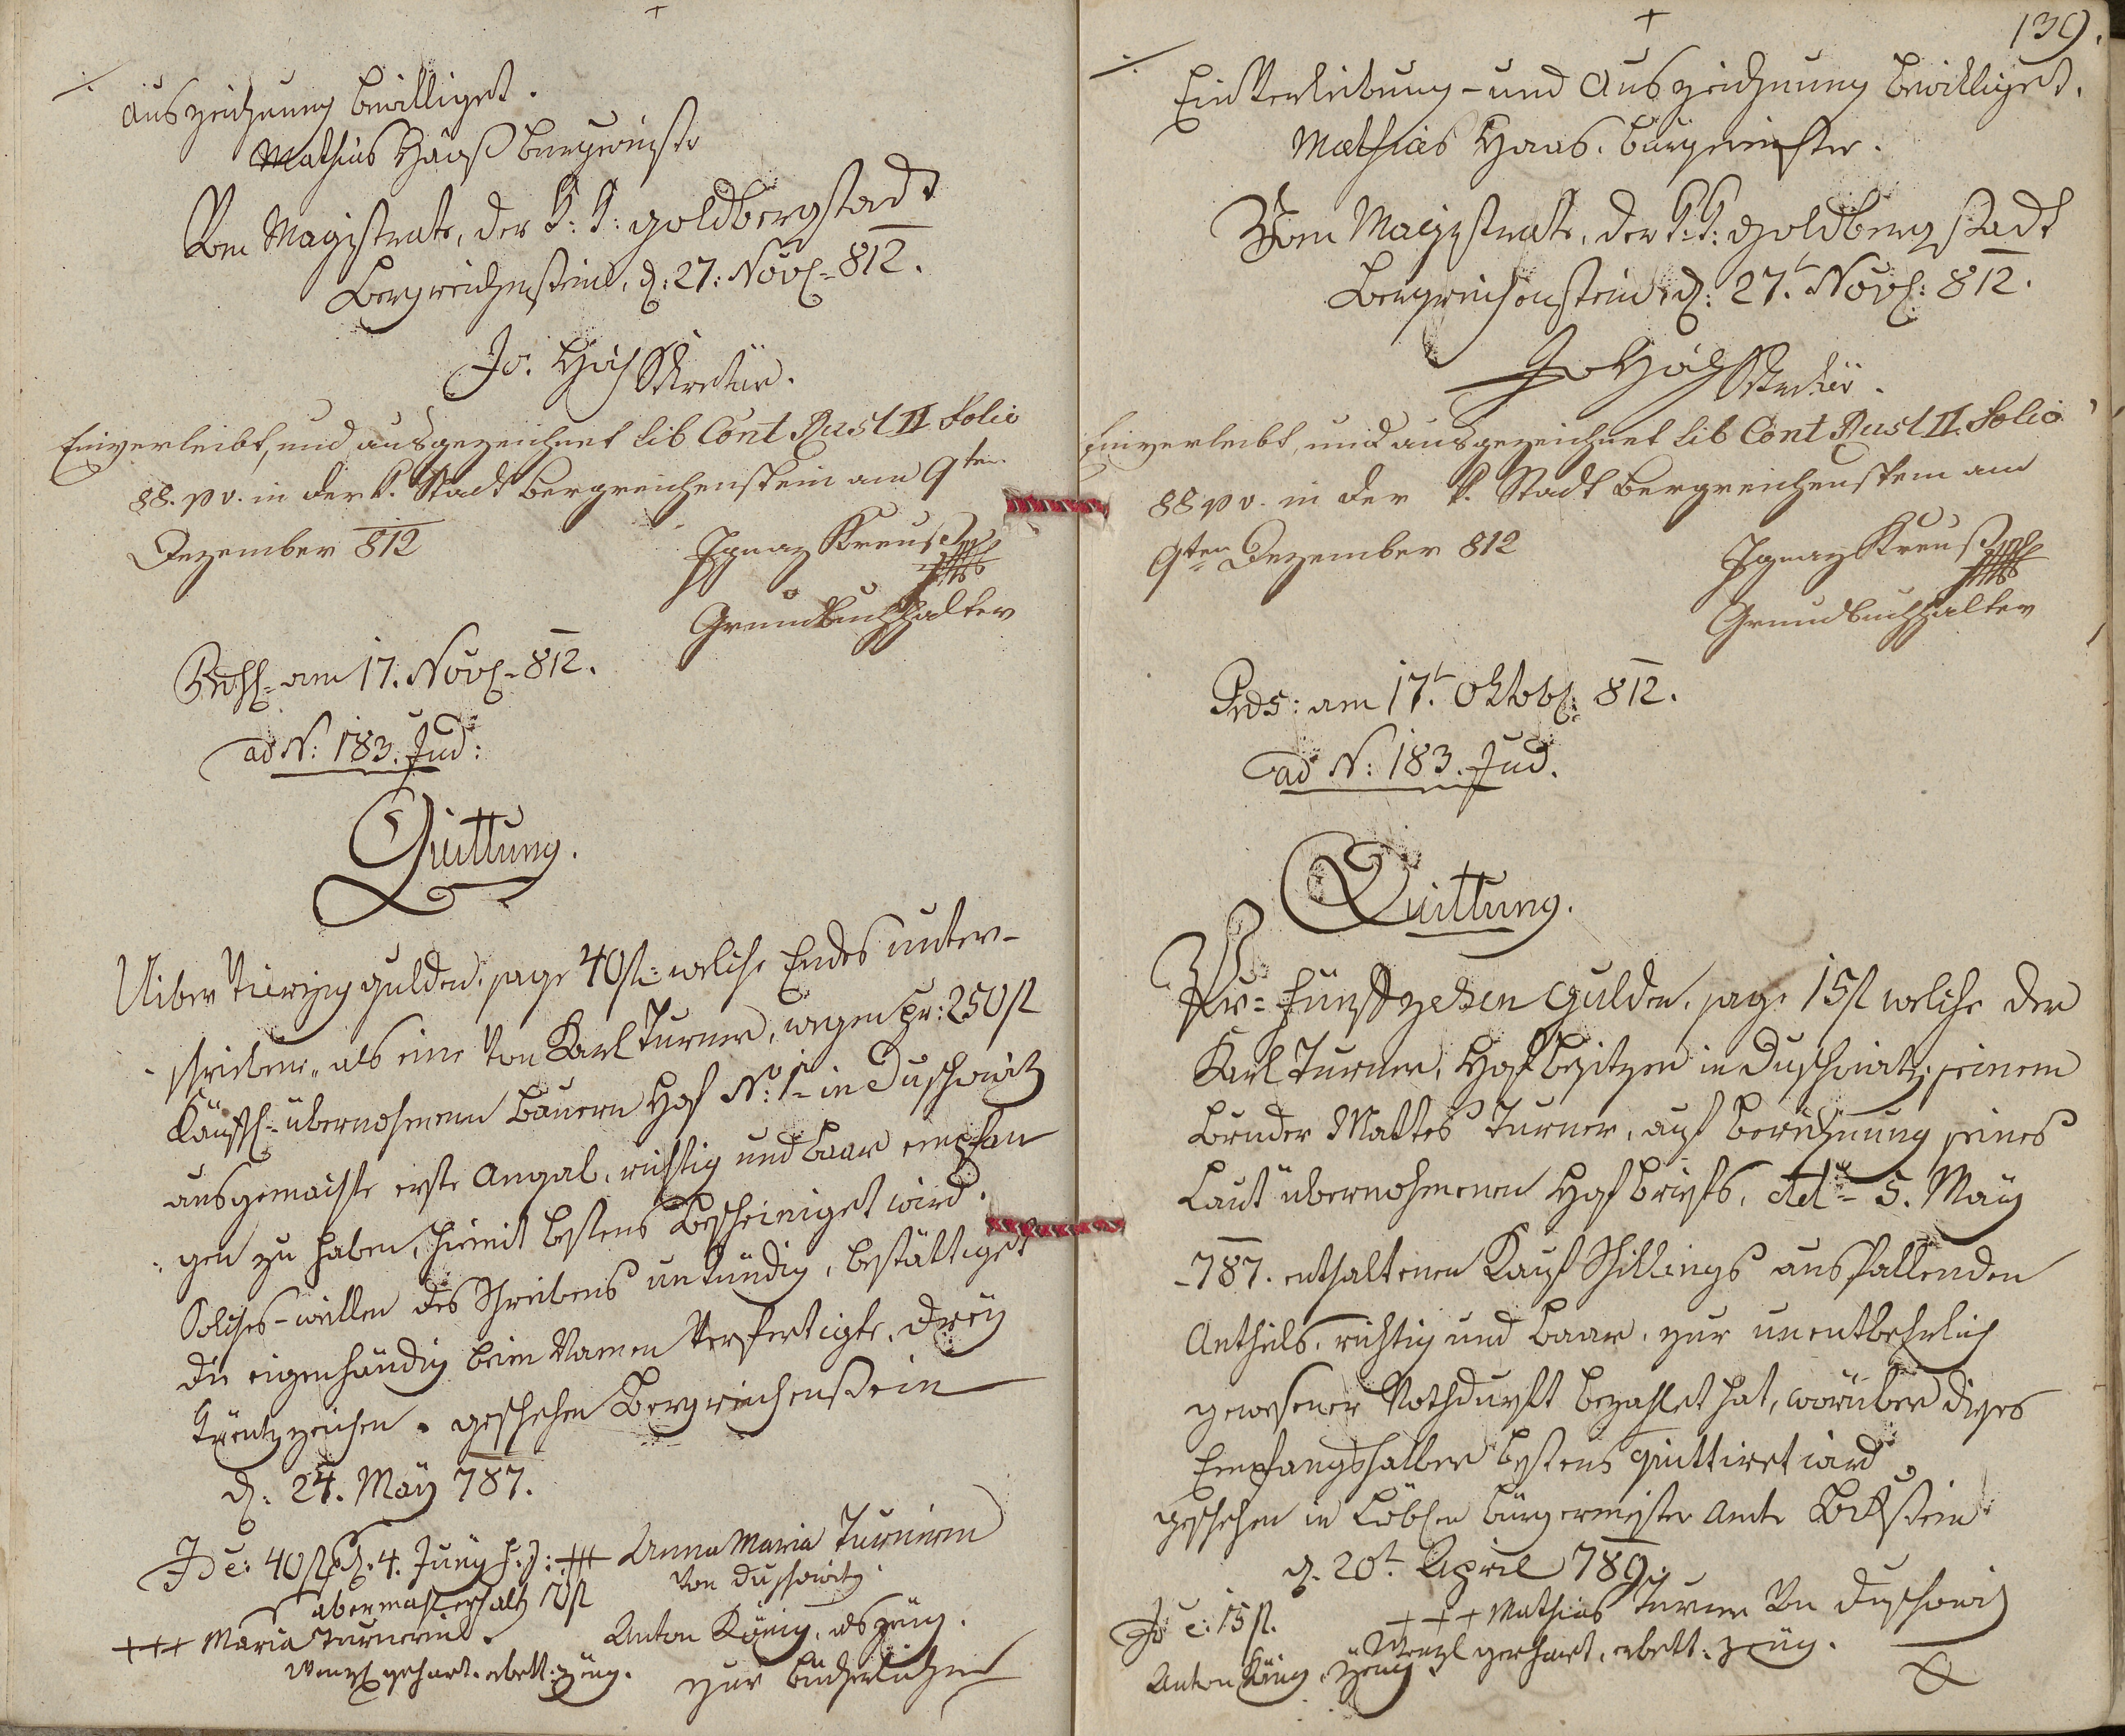 Auszeichnung bewilliget.
Mathias Haas Burgermeister
Vom Magistrate, der K: K: Goldbergstadt
Bergreichenstein, d: 27: Nov. 812.
Jo. Sekretär.
Einverleibt, und ausgezeichnet Lib Cont Rust II Folio
88. p v. in der k. Stadt Bergreichenstein am 9ten
Dezember 812
Ignaz Kreuß
Grundbuchhalter
am 17. Nov. 812.
ad N: 183. Jud:
Quittung.
Uiber Vierzig Gulden, sage 40 fl: welche Endes unter-
schriebene als eine von Karl Turner, wegen pr: 250 fl
Käufl: übernohmenen Bauern Hof N: 1 in Duschowitz
ausgemachte erste Angab, richtig und baar empfan
gen zu haben, hiemit bestens bescheiniget wird.
Solches willen des Schreibens unkündig, bestättiget
die eigenhändig beim Namen verfertigte, drey
Kreutzzeichen. geschehen Bergreichenstein
d: 24. May 787.
Id e: 40 fl d. 4. Juny h: J: +++ Anna Maria Turnerin
von Duschowitz
abermahl erhalt 10 fl
+++ Maria Turnerin.
Anton König, als Zeug.
Wenzl gerhart. erbett. Zeug.
zur
139.
Einverleibung- und Auszeichnung bewilliget.
Mathias Haas. Bürgermeister.
Vom Magistrate, der K: K: Goldbergstadt
Bergreichenstein d: 27. Nov: 812.
Jo Sekretär.
Einverleibt, und ausgezeichnet Lib Cont Rust II. Folio
88 p v. in der k. Stadt Bergreichenstein am
9ten Dezember 812
Ignaz Kreuß
Grundbuchhalter
Präs: am 17. Oktob: 812.
ad N: 183. Jud.
Quittung.
Pr= Fünfzehen Gulden, sage 15 fl welche der
Karl Turner, Hofbesitzer in Duschowitz, seinem
Bruder Mattes Turner, auf Berechnung seines
Laut übernohmenen Hofbriefs, dd= 5. May
787. enthaltenen Kauf Schillings ausfallenden
Antheils, richtig und baar, zur unentbehrlich
gewesener Nothdurft bezahlet hat, worüber dieses
Empfangshalber bestens quittiret wird
geschehen in Löbl. Bürgermeister Amte
d. 20t April 789.
Id e: 15 fl.
+++ Mathias Turner von Duschowitz
Wenzl gerhart, erbett: Zeug.
Anton König, Zeug